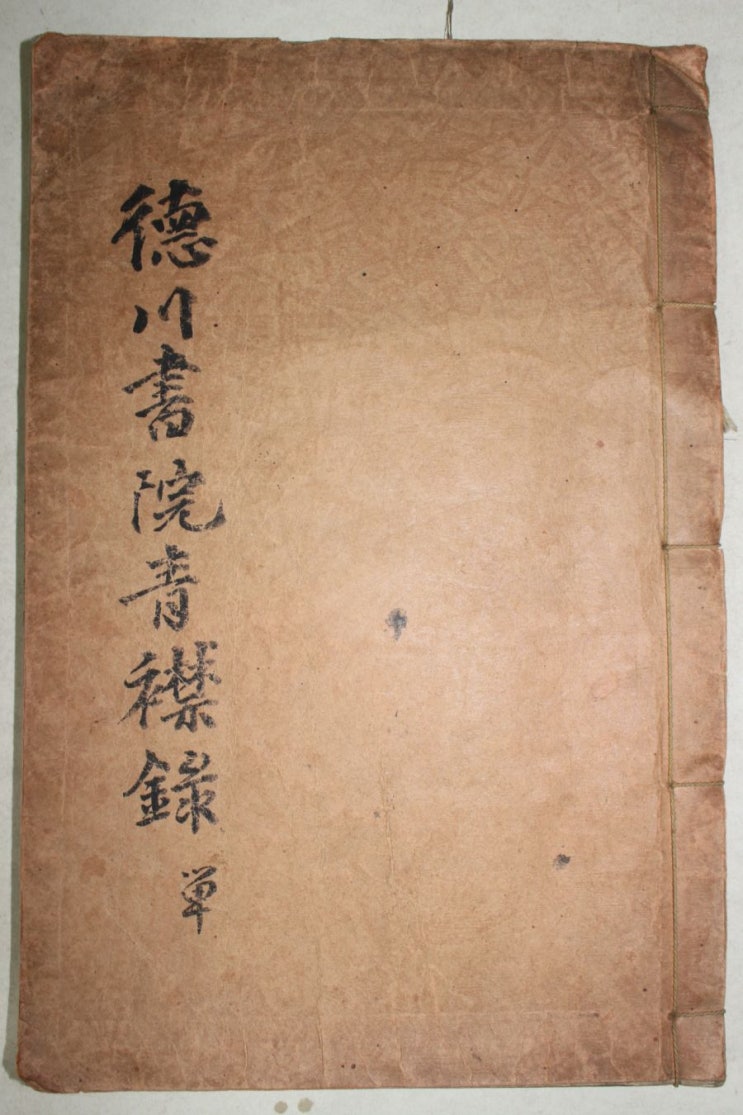 德川書院青襟錄
单